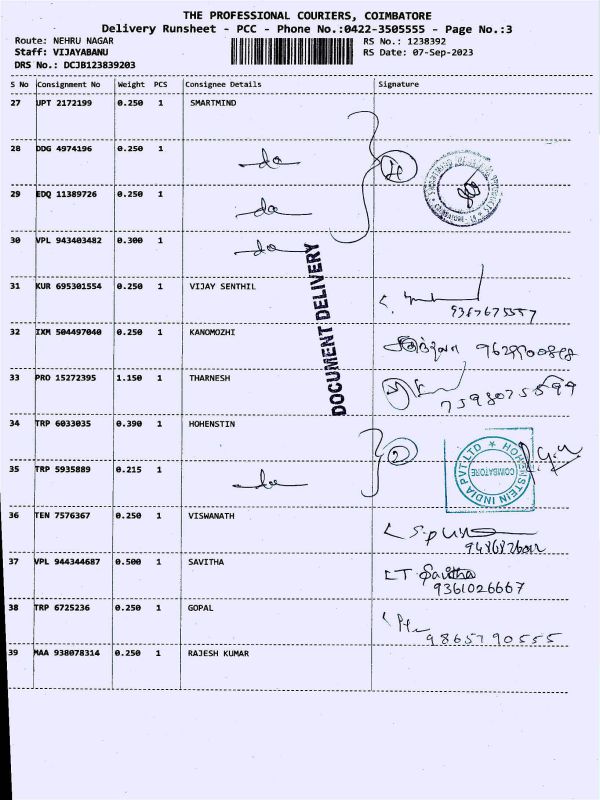 THE PROFESSIONAL COURIERS, COIMBATORE
Delivery Runsheet - PCC - Phone No.:0422-3505555 - Page No.:3
Route: NEHRU NAGAR RS No.: 1238392
Staff: VIJAYABANU RS Date: 07-Sep-2023
DRS No.: DCJB123839203
S No Consignment No Weight PCS Consignee Details Signature
27 UPT 2172199 0.250 1 SMARTMIND
28 DDG 4974196 0.250 1 do
29 EDQ 11389726 0.250 1 do
30 VPL 943403482 0.300 1 do
31 KUR 695301554 0.250 1 VIJAY SENTHIL
32 IXM 504497040 0.250 1 KANOMOZHI
33 PRO 15272395 1.150 1 THARNESH
DOCUMENT DELIVERY
34 TRP 6033035 0.390 1 HOHENSTIN 2
HOHENSTEIN INDIA PVT LTD
COIMBATORE
35 TRP 5935889 0.215 1 do
36 TEN 7576367 0.250 1 VISWANATH
37 VPL 944344687 0.500 1 SAVITHA T Savitha
9361026667
38 TRP 6725236 0.250 1 GOPAL
9865790555
39 MAA 938078314 0.250 1 RAJESH KUMAR